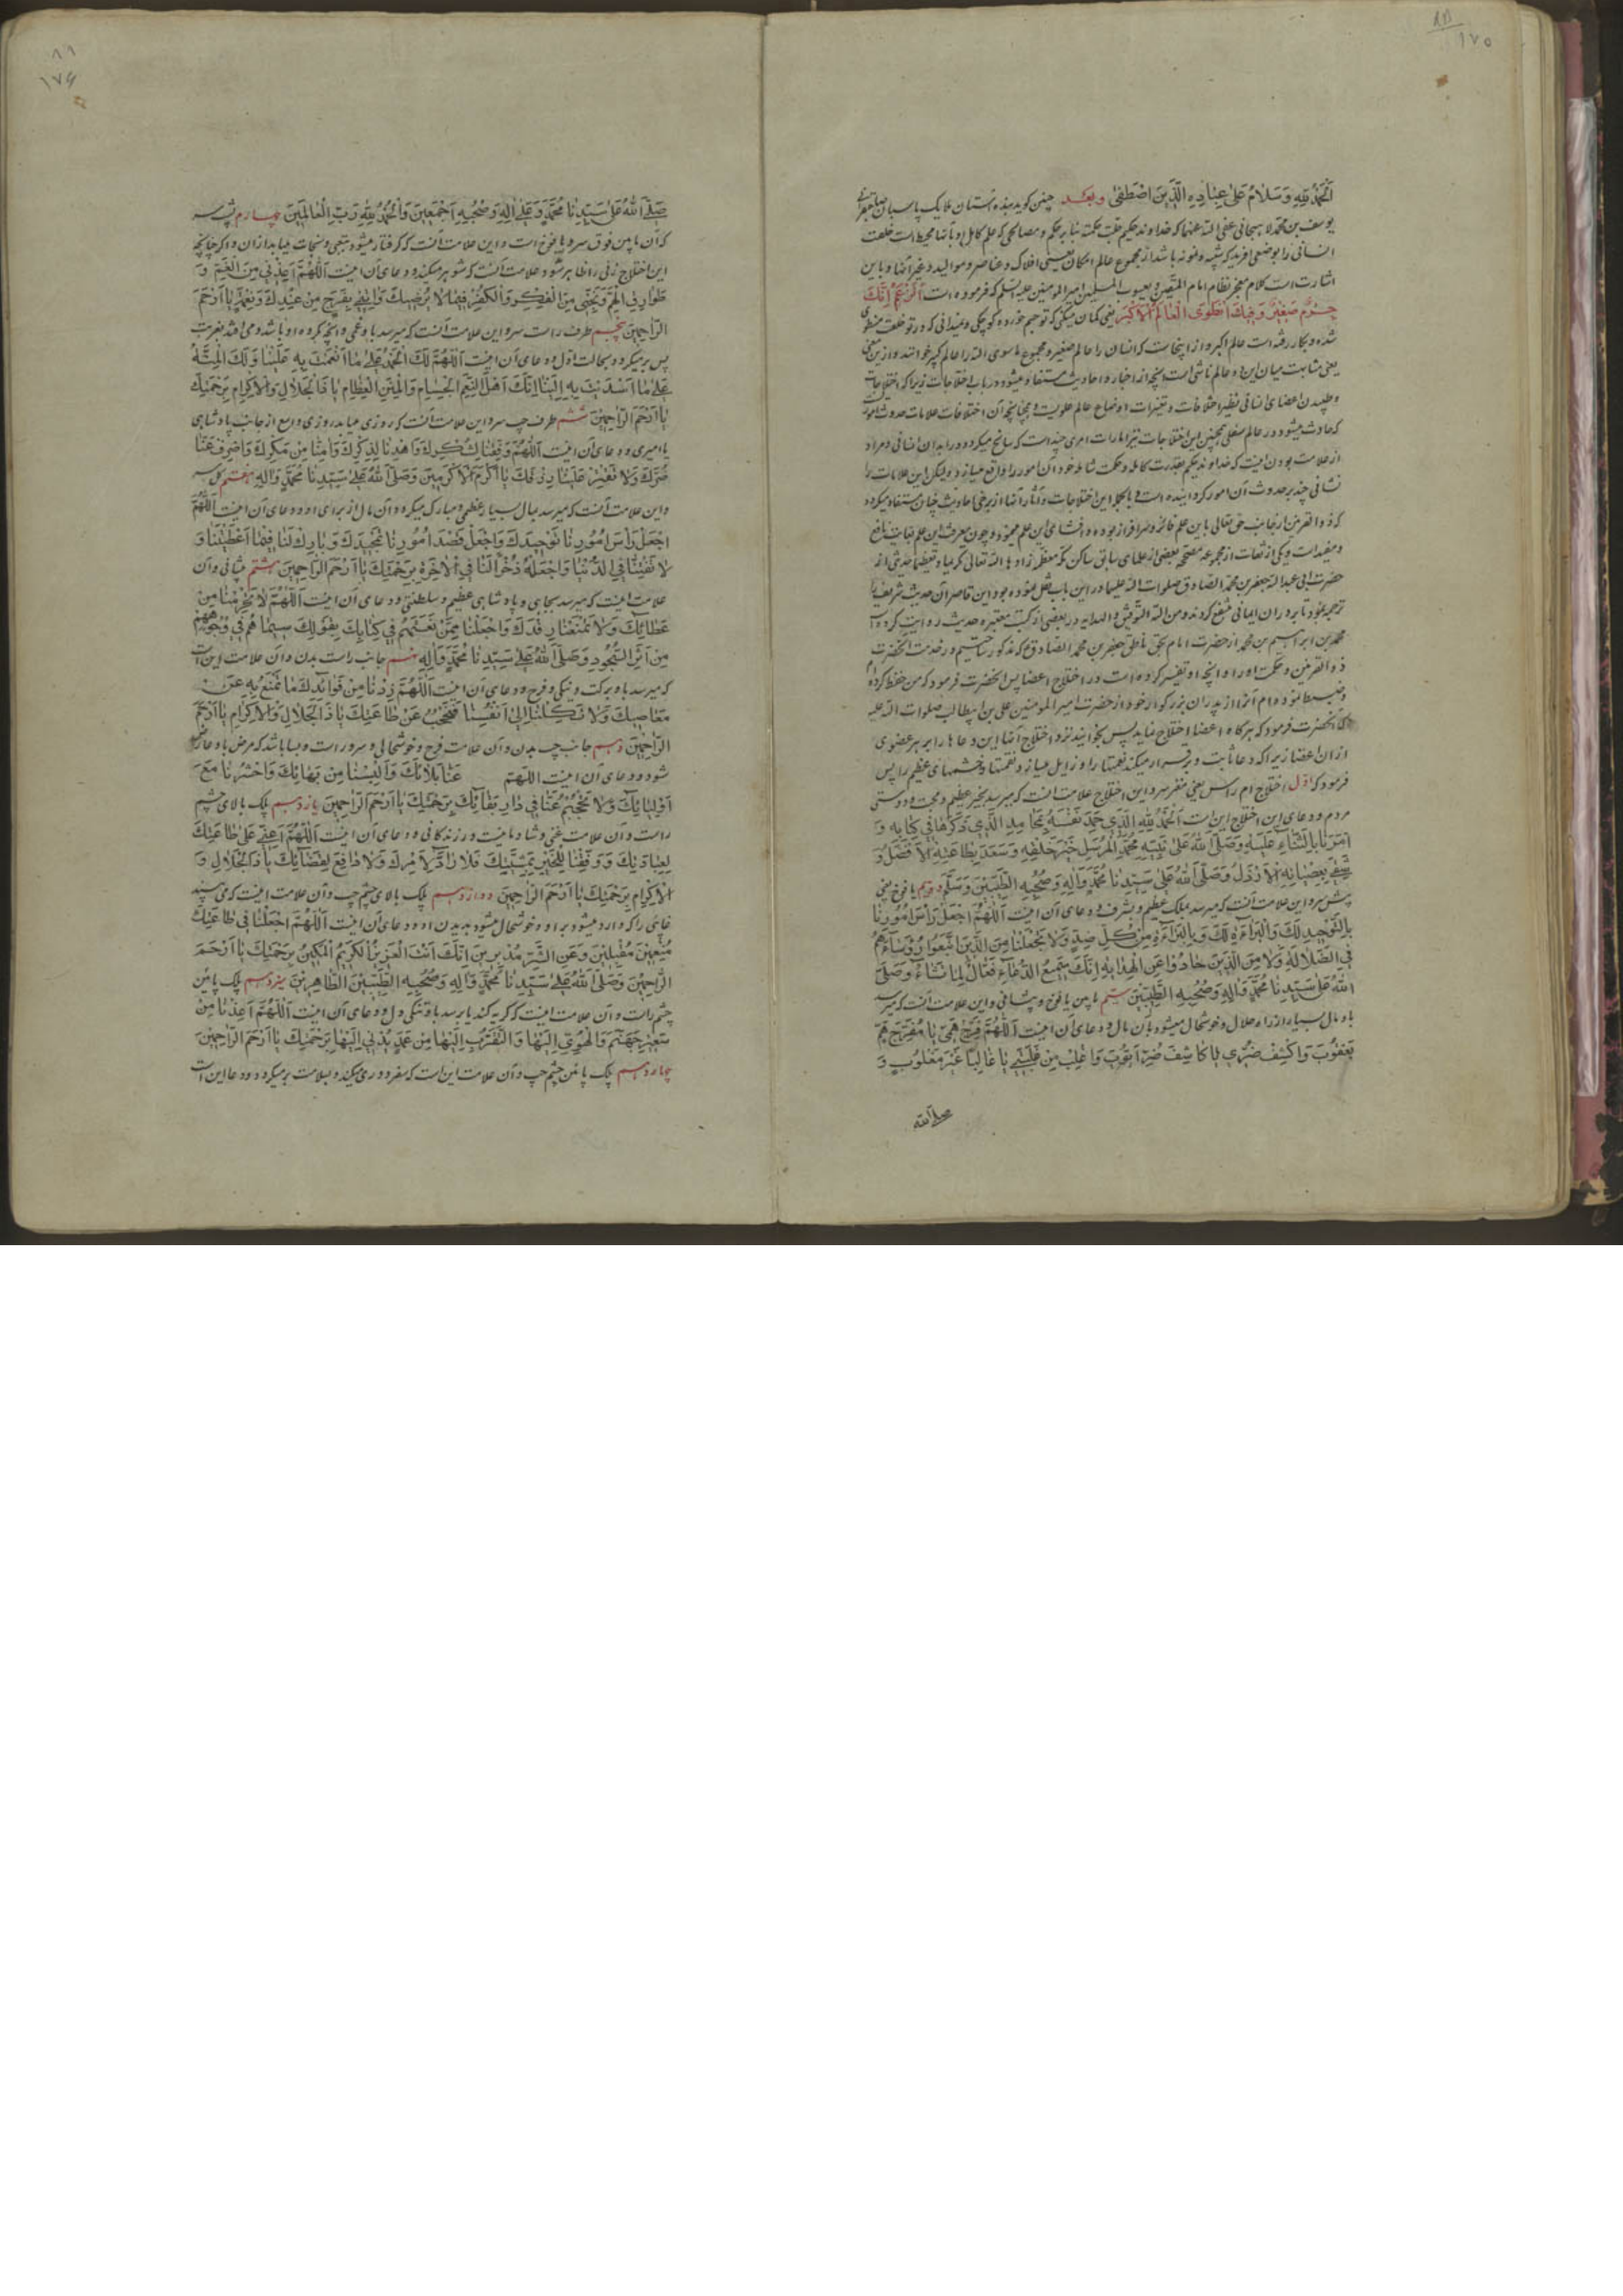 ۱۷۵
الْحَمْدُ لِلّٰهِ وَسَلَامٌ عَلَىٰ عِبَادِهِ الَّذِينَ اصْطَفَىٰ وبعد چنین کوید بنده آستان ملایک پاسبان
یوسف بن محمد لاهیجانی عفی الله عنهما که خداوند حکیم جلت حکمته بنا بر حکم و مصالحی که علم کامل او بآنها محیط است خلقت
انسانی را بوضعی آفرید که شبیه و نمونه باشد از مجموع عالم امکان یعنی افلاک و عناصر و موالید و غیر آنها و باین
اشارت است کلام معجز نظام امام المتقین و یعسوب المسلمین امیر المومنین علیه السلم که فرموده است اَتَزْعَمُ اَنَّكَ
جِرْمٌ صَغِيرٌ وَفِيكَ انْطَوَى الْعَالَمُ الْاَكْبَرُ یعنی کمان میکنی که تو جرم خورد و کوچکی و نمیدانی که در تو خلقت منطوی
شده و بکار رفته است عالم اکبر و از اینجاست که انسان را عالم صغیر و مجموع ما سوی الله را عالم کبیر خوانند و از این معنی
یعنی مشابهت میان این دو عالم ناشی است آنچه از اخبار و احادیث مستفاد میشود در باب اختلاجات زیرا که اختلاجات
و طپیدن اعضای انسانی نظیر اختلافات و تغیرات اوضاع عالم علویست و چنانچه آن اختلافات علامات حدوث امور
که حادث میشود در عالم سفلی همچنین این اختلاجات نیز امارات امری چند است که سانح میکردد در ابدان انسانی و مراد
از علامت بودن اینست که خداوند حکیم بقدرت کامله و حکمت شامله خود آن امور را واقع میسازد و لیکن این علامات را
نشانی چند بر حدوث آن امور کردانیده است و بالجمله این اختلاجات و آثار آنها از برخی احادیث چنان مستفاد میکردد
که ذو القرنین از جانب حق تعالی باین علم فائز و سرافراز بوده و افشای این علم نموده و چون معرفت این علم بغایت نافع
و مفید است و یکی از ثقات از مجموعه مصححه بعضی از علمای سابق ساکن مکه معظمه زادها الله تعالی تکریما و تعظیما حدیثی از
حضرت ابی عبد الله جعفر بن محمد الصادق صلوات الله علیهما در این باب نقل نموده بود این قاصر آن حدیث شریف را
ترجمه نمود تا برادران ایمانی منتفع کردند و من الله التوفیق و الهدایه در بعضی از کتب معتبره حدیث روایت کرده است
محمد بن ابراهیم بن محمد از حضرت امام بحق ناطق جعفر بن محمد الصادق ع که مذکور ساختیم در خدمت آنحضرت
ذو القرنین و حکمت او را و آنچه او تفسیر کرده است در اختلاج اعضا پس آنحضرت فرمود که من حفظ کرده ام
و ضبط نموده ام آنرا از پدران بزرکوار خود از حضرت امیر المومنین علی بن ابیطالب صلوات الله علیه
که آنحضرت فرمود که هرکاه اعضا اختلاج نماید پس بخوانید نزد اختلاج آنها این دعاها را بر هر عضوی
از ان اعضا زیرا که دعا ثابت و برقرار میکند نعمتها را و زایل میسازد نقمتها و خشمهای عظیم را پس
فرمود که اوّل اختلاج ام راس یعنی مغز سر و این اختلاج علامت آنست که میرسد بخیر عظیم و محبت و دوستی
مردم و دعای این اختلاج این است اَلْحَمْدُ لِلّٰهِ الَّذِي حَمِدَ نَفْسَهُ بِمَحَامِدِ الَّذِي ذَكَرَهَا فِي كِتَابِهِ وَ
اَمَرَنَا بِالثَّنَاءِ عَلَيْهِ وَصَلَّى اللهُ عَلَىٰ نَبِيِّهِ مُحَمَّدٍ الْمُرْسَلِ خَيْرِ خَلْقِهِ وَسَعَدَ بِطَاعَتِهِ الْاَفْضَلُ وَ
شَقِيَ بِعِصْيَانِهِ الْاَرْذَلُ وَصَلَّى اللهُ عَلَىٰ سَيِّدِنَا مُحَمَّدٍ وَآلِهِ وَصَحْبِهِ الطَّيِّبِينَ وَسَلَّمَ دویم یافوخ یعنی
پیش سر و این علامت آنست که میرسد بملک عظیم و بشرف و دعای آن اینست اَللّٰهُمَّ اجْعَلْ رَأْسَ اُمُورِنَا
بِالتَّوْحِيدِ لَكَ وَالْبَرَاءَةِ لَكَ وَبِالْبَرَاءَةِ مِنْ كُلِّ ضِدٍّ وَلَا تَجْعَلْنَا مِنَ الَّذِينَ اتَّبَعُوا رُؤَسَاءَهُمْ
فِي الضَّلَالَةِ وَلَا مِنَ الَّذِينَ حَادُوا عَنِ الْهِدَايَةِ اِنَّكَ سَمِيعُ الدُّعَاءِ فَعَّالٌ لِمَا تَشَاءُ وَصَلَّى
اللهُ عَلَىٰ سَيِّدِنَا مُحَمَّدٍ وَآلِهِ وَصَحْبِهِ الطَّيِّبِينَ سیّم مابین یافوخ و پیشانی و این علامت آنست که میرسد
باو مال بسیار از راه حلال و خوشحال میشود بآن مال و دعای آن اینست اَللّٰهُمَّ فَرِّجْ هَمِّي يَا مُفَرِّجَ هَمِّ
يَعْقُوبَ وَاكْشِفْ ضُرِّي يَا كَاشِفَ ضُرِّ اَيُّوبَ وَاغْلِبْ مَنْ غَلَبَنِي يَا غَالِبًا غَيْرَ مَغْلُوبٍ وَ
صلی الله
۸۹
۱۷۶
صَلَّى اللهُ عَلَىٰ سَيِّدِنَا مُحَمَّدٍ وَعَلَىٰ آلِهِ وَصَحْبِهِ اَجْمَعِينَ وَالْحَمْدُ لِلّٰهِ رَبِّ الْعَالَمِينَ چهارم پس سر
که آن مابین فوق سر و یافوخ است و این علامت آنست که کرفتار میشود بتعبی و نجات میابد از ان و اکر چنانچه
این اختلاج زنی را ظاهر شود علامت آنست که شوهر میکند و دعای آن اینست اَللّٰهُمَّ اَعِذْنِي مِنَ الْغَمِّ وَ
طَوَارِقِ الْهَمِّ وَنَجِّنِي مِنَ الْفِكْرِ وَالْكُفْرِ فِيمَا لَا يُرْضِيكَ وَاَتْحِفْنِي بِفَرَجٍ مِنْ عِنْدِكَ وَنِعْمَةٍ يَا اَرْحَمَ
الرَّاحِمِينَ پنجم طرف راست سر و این علامت آنست که میرسد باو غمی و آنچه کرده او باشد و می افتد بغربت
پس برمیکردد بحالت اول و دعای آن اینست اَللّٰهُمَّ لَكَ الْحَمْدُ عَلَىٰ مَا اَنْعَمْتَ بِهِ عَلَيْنَا وَلَكَ الْمِنَّةُ
عَلَىٰ مَا اَسْدَيْتَ بِهِ اِلَيْنَا اِنَّكَ اَهْلُ النِّعَمِ الْجِسَامِ وَالْمِنَنِ الْعِظَامِ يَا ذَا الْجَلَالِ وَالْاِكْرَامِ بِرَحْمَتِكَ
يَا اَرْحَمَ الرَّاحِمِينَ ششم طرف چپ سر و این علامت آنست که روزی میابد روزی واسع از جانب پادشاهی
یا امیری و دعای آن اینست اَللّٰهُمَّ وَفِّقْنَا لِشُكْرِكَ وَاهْدِنَا لِذِكْرِكَ وَآمِنَّا مِنْ مَكْرِكَ وَاصْرِفْ عَنَّا
ضُرَّكَ وَلَا تُغَيِّرْ عَلَيْنَا رِزْقَكَ يَا اَكْرَمَ الْاَكْرَمِينَ وَصَلَّى اللهُ عَلَىٰ سَيِّدِنَا مُحَمَّدٍ وَآلِهِ هفتم کل سر
و این علامت آنست که میرسد بمال بسیار عظیمی و مبارک میکردد آن مال از برای او و دعای آن اینست اَللّٰهُمَّ
اجْعَلْ رَأْسَ اُمُورِنَا تَوْحِيدَكَ وَاجْعَلْ قَصْدَ اُمُورِنَا تَمْجِيدَكَ وَبَارِكْ لَنَا فِيمَا اَعْطَيْتَنَا وَ
لَا تَفْتِنَّا فِي الدُّنْيَا وَاجْعَلْهُ ذُخْرًا لَنَا فِي الْآخِرَةِ بِرَحْمَتِكَ يَا اَرْحَمَ الرَّاحِمِينَ هشتم پیشانی و آن
علامت اینست که میرسد بجاهی و پادشاهی عظیم و سلطنتی و دعای آن اینست اَللّٰهُمَّ لَا تَحْرِمْنَا مِنْ
عَطَائِكَ وَلَا تَمْنَعْنَا رِفْدَكَ وَاجْعَلْنَا مِمَّنْ نَعَتَّهُمْ فِي كِتَابِكَ بِقَوْلِكَ سِيمَاهُمْ فِي وُجُوهِهِمْ
مِنْ اَثَرِ السُّجُودِ وَصَلَّى اللهُ عَلَىٰ سَيِّدِنَا مُحَمَّدٍ وَآلِهِ نهم جانب راست بدن و آن علامت این است
که میرسد باو برکت و نیکی و فرح و دعای آن اینست اَللّٰهُمَّ زِدْنَا مِنْ فَوَائِدِكَ مَا تَمْنَعُ بِهِ عَنْ
مَعَاصِيكَ وَلَا تَكِلْنَا اِلَىٰ اَنْفُسِنَا فَنُحْجَبُ عَنْ طَاعَتِكَ يَا ذَا الْجَلَالِ وَالْاِكْرَامِ يَا اَرْحَمَ
الرَّاحِمِينَ دهم جانب چپ بدن و آن علامت فرح و خوشحالی و سرور است و بسا باشد که مرض باو عارض
شود و دعای آن اینست اللهم عَنَّا بَلَائَكَ وَاَلْبِسْنَا مِنْ بَهَائِكَ وَاحْشُرْنَا مَعَ
اَوْلِيَائِكَ وَلَا تَحْجُبْهُمْ عَنَّا فِي دَارِ بَقَائِكَ بِرَحْمَتِكَ يَا اَرْحَمَ الرَّاحِمِينَ یازدهم پلک بالای چشم
راست و آن علامت غمی و شادمانیست در زندکانی و دعای آن اینست اَللّٰهُمَّ اَعِنِّي عَلَىٰ طَاعَتِكَ
لِعِبَادَتِكَ وَوَفِّقْنَا لِلْخَيْرِ بِمَشِيَّتِكَ فَلَا رَادَّ لِاَمْرِكَ وَلَا دَافِعَ لِقَضَائِكَ يَا ذَا الْجَلَالِ وَ
الْاِكْرَامِ بِرَحْمَتِكَ يَا اَرْحَمَ الرَّاحِمِينَ دوازدهم پلک بالای چشم چپ و آن علامت اینست که می بیند
غایبی را که وارد میشود بر او و خوشحال میشود بدیدن او و دعای آن اینست اَللّٰهُمَّ اجْعَلْنَا فِي طَاعَتِكَ
مُنِيبِينَ مُقْبِلِينَ وَعَنِ الشَّرِّ مُدْبِرِينَ اِنَّكَ اَنْتَ الْعَزِيزُ الْكَرِيمُ الْمَكِينُ بِرَحْمَتِكَ يَا اَرْحَمَ
الرَّاحِمِينَ وَصَلَّى اللهُ عَلَىٰ سَيِّدِنَا مُحَمَّدٍ وَآلِهِ وَصَحْبِهِ الطَّيِّبِينَ الطَّاهِرِينَ سیزدهم پلک پائین
چشم راست و آن علامت اینست که کریه کند یا برسد باو تنکی دل و دعای آن اینست اَللّٰهُمَّ اَعِذْنَا مِنْ
سَعِيرِ جَهَنَّمَ وَالْهُوِيِّ اِلَيْهَا وَالتَّقَرُّبِ اِلَيْهَا مِنْ عَمَلٍ يُدْنِي اِلَيْهَا بِرَحْمَتِكَ يَا اَرْحَمَ الرَّاحِمِينَ
چهاردهم پلک پائین چشم چپ و آن علامت این است که سفر دوری میکند و بسلامت برمیکردد و دعا این است